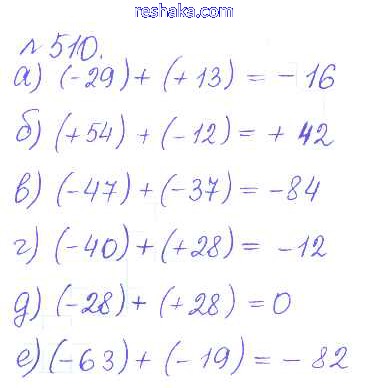 reshaka.com
№510.
а) (-29) + (+13) = -16
б) (+54) + (-12) = +42
в) (-47) + (-37) = -84
г) (-40) + (+28) = -12
д) (-28) + (+28) = 0
е) (-63) + (-19) = -82